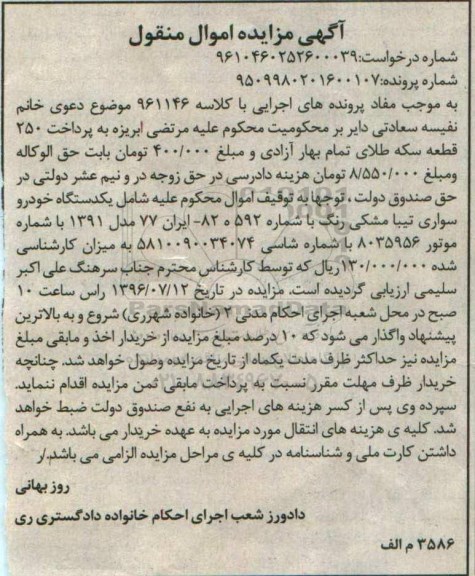 آگهی مزایده اموال منقول
شماره درخواست:۹۶۱۰۴۶۰۲۵۲۶۰۰۰۳۹
شماره پرونده:۹۵۰۹۹۸۰۲۰۱۶۰۰۱۰۷
به موجب مفاد پرونده های اجرایی با کلاسه ۹۶۱۱۴۶ موضوع دعوی خانم
نفیسه سعادتی دایر بر محکومیت محکوم علیه مرتضی ابریزه به پرداخت ۲۵۰
قطعه سکه طلای تمام بهار آزادی و مبلغ ۴۰۰/۰۰۰ تومان بابت حق الوکاله
ومبلغ ۸/۵۵۰/۰۰۰ تومان هزینه دادرسی در حق زوجه در و نیم عشر دولتی در
حق صندوق دولت ، توجها به توقیف اموال محکوم علیه شامل یکدستگاه خودرو
سواری تیبا مشکی رنگ با شماره ۵۹۲ ه ۸۲- ایران ۷۷ مدل ۱۳۹۱ با شماره
موتور ۸۰۳۵۹۵۶ با شماره شاسی ۵۸۱۰۰۹۰۰۳۴۰۷۴ به میزان کارشناسی
شده ۱۳۰/۰۰۰/۰۰۰ ریال که توسط کارشناس محترم جناب سرهنگ علی اکبر
سلیمی ارزیابی گردیده است. مزایده در تاریخ ۱۳۹۶/۰۷/۱۲ راس ساعت ۱۰
صبح در محل شعبه اجرای احکام مدنی ۲ (خانواده شهرری) شروع و به بالاترین
پیشنهاد واگذار می شود که ۱۰ درصد مبلغ مزایده از خریدار اخذ و مابقی مبلغ
مزایده نیز حداکثر ظرف مدت یکماه از تاریخ مزایده وصول خواهد شد. چنانچه
خریدار ظرف مهلت مقرر نسبت به پرداخت مابقی ثمن مزایده اقدام ننماید.
سپرده وی پس از کسر هزینه های اجرایی به نفع صندوق دولت ضبط خواهد
شد. کلیه ی هزینه های انتقال مورد مزایده به عهده خریدار می باشد. به همراه
داشتن کارت ملی و شناسنامه در کلیه ی مراحل مزایده الزامی می باشد./ر
روز بهانی
دادورز شعب اجرای احکام خانواده دادگستری ری
۳۵۸۶ م الف